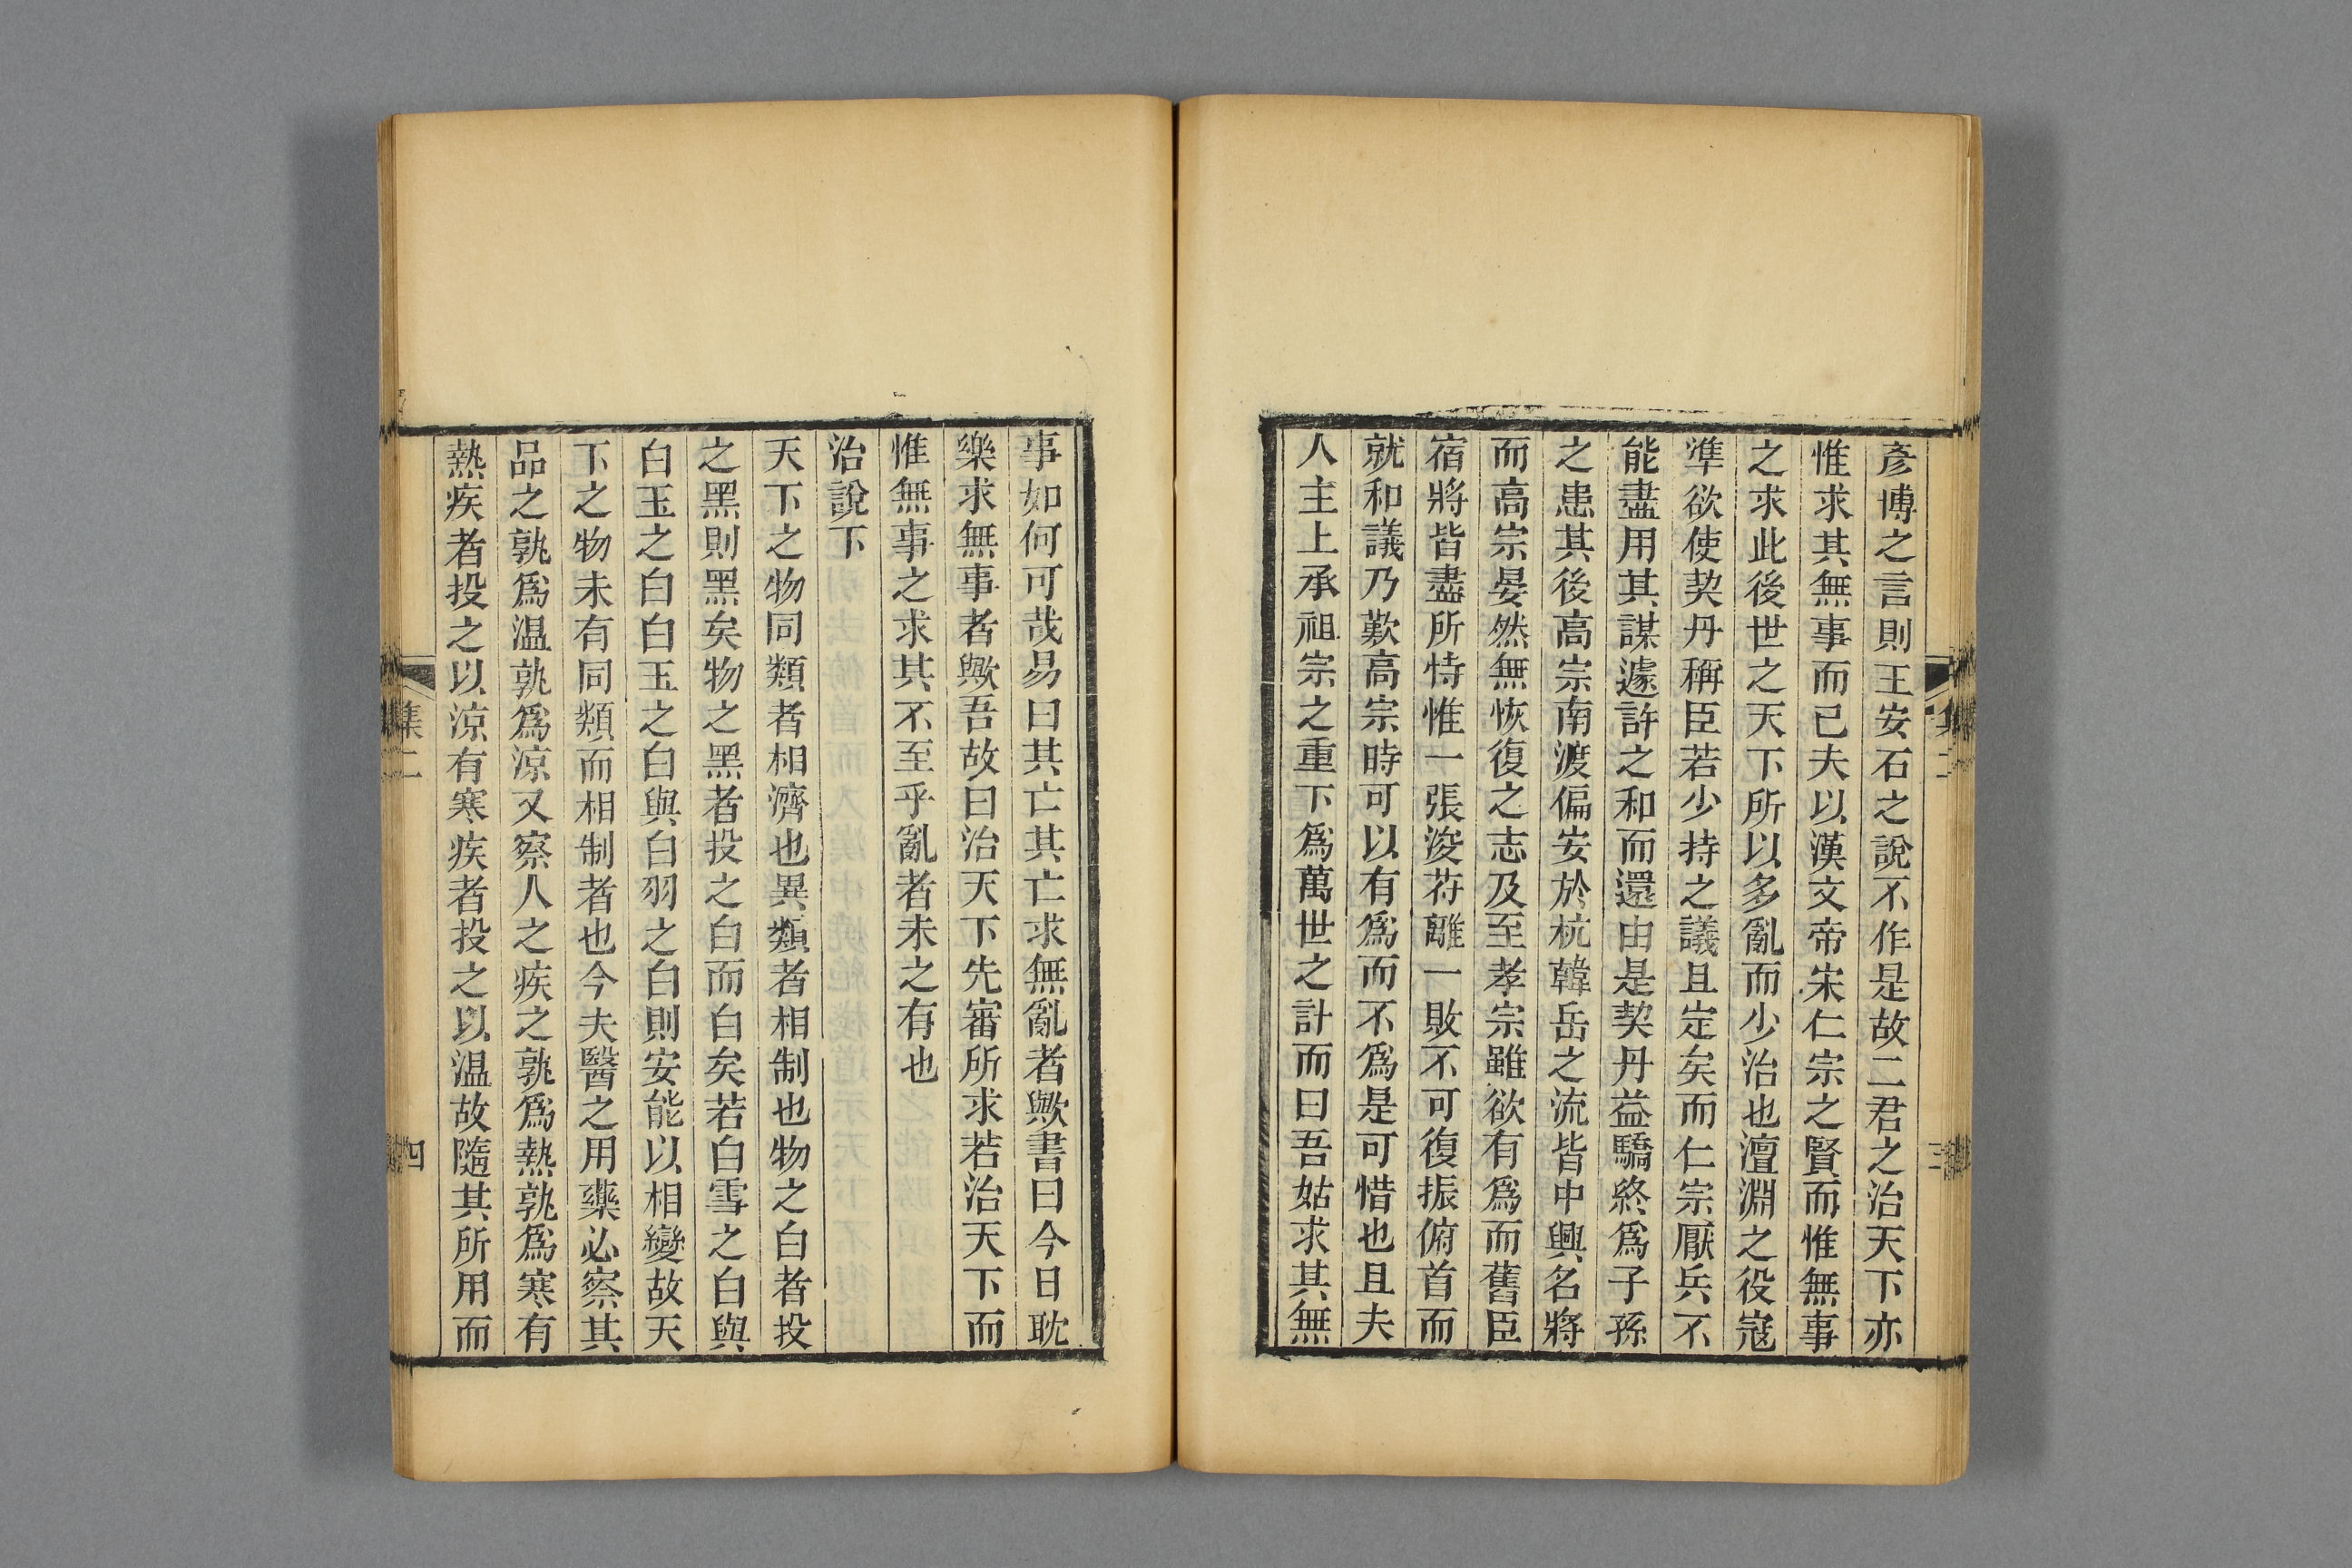 彥博之言則王安石之說不作是故二君之治天下亦
惟求其無事而已夫以漢文帝宋仁宗之賢而惟無事
之求此後世之天下所以多亂而少治也澶淵之役寇
準欲使契丹稱臣若少持之議且定矣而仁宗厭兵不
能盡用其謀遽許之和而還由是契丹益驕終爲子孫
之患其後高宗南渡偏安於杭韓岳之流皆中興名將
而高宗晏然無恢復之志及至孝宗雖欲有爲而舊臣
宿將皆盡所恃惟一張浚苻離一敗不可復振俯首而
就和議乃歎高宗時可以有爲而不爲是可惜也且夫
人主上承祖宗之重下爲萬世之計而曰吾姑求其無
事如何可哉易曰其亡其亡求無亂者歟書曰今日耽
樂求無事者歟吾故曰治天下先審所求若治天下而
惟無事之求其不至乎亂者未之有也
治說下
天下之物同類者相濟也異類者相制也物之白者投
之黑則黑矣物之黑者投之白而白矣若白雪之白與
白玉之白白玉之白與白羽之白則安能以相變故天
下之物未有同類而相制者也今夫醫之用藥必察其
品之孰爲温孰爲涼又察人之疾之孰爲熱孰爲寒有
熱疾者投之以涼有寒疾者投之以温故隨其所用而
集二
四